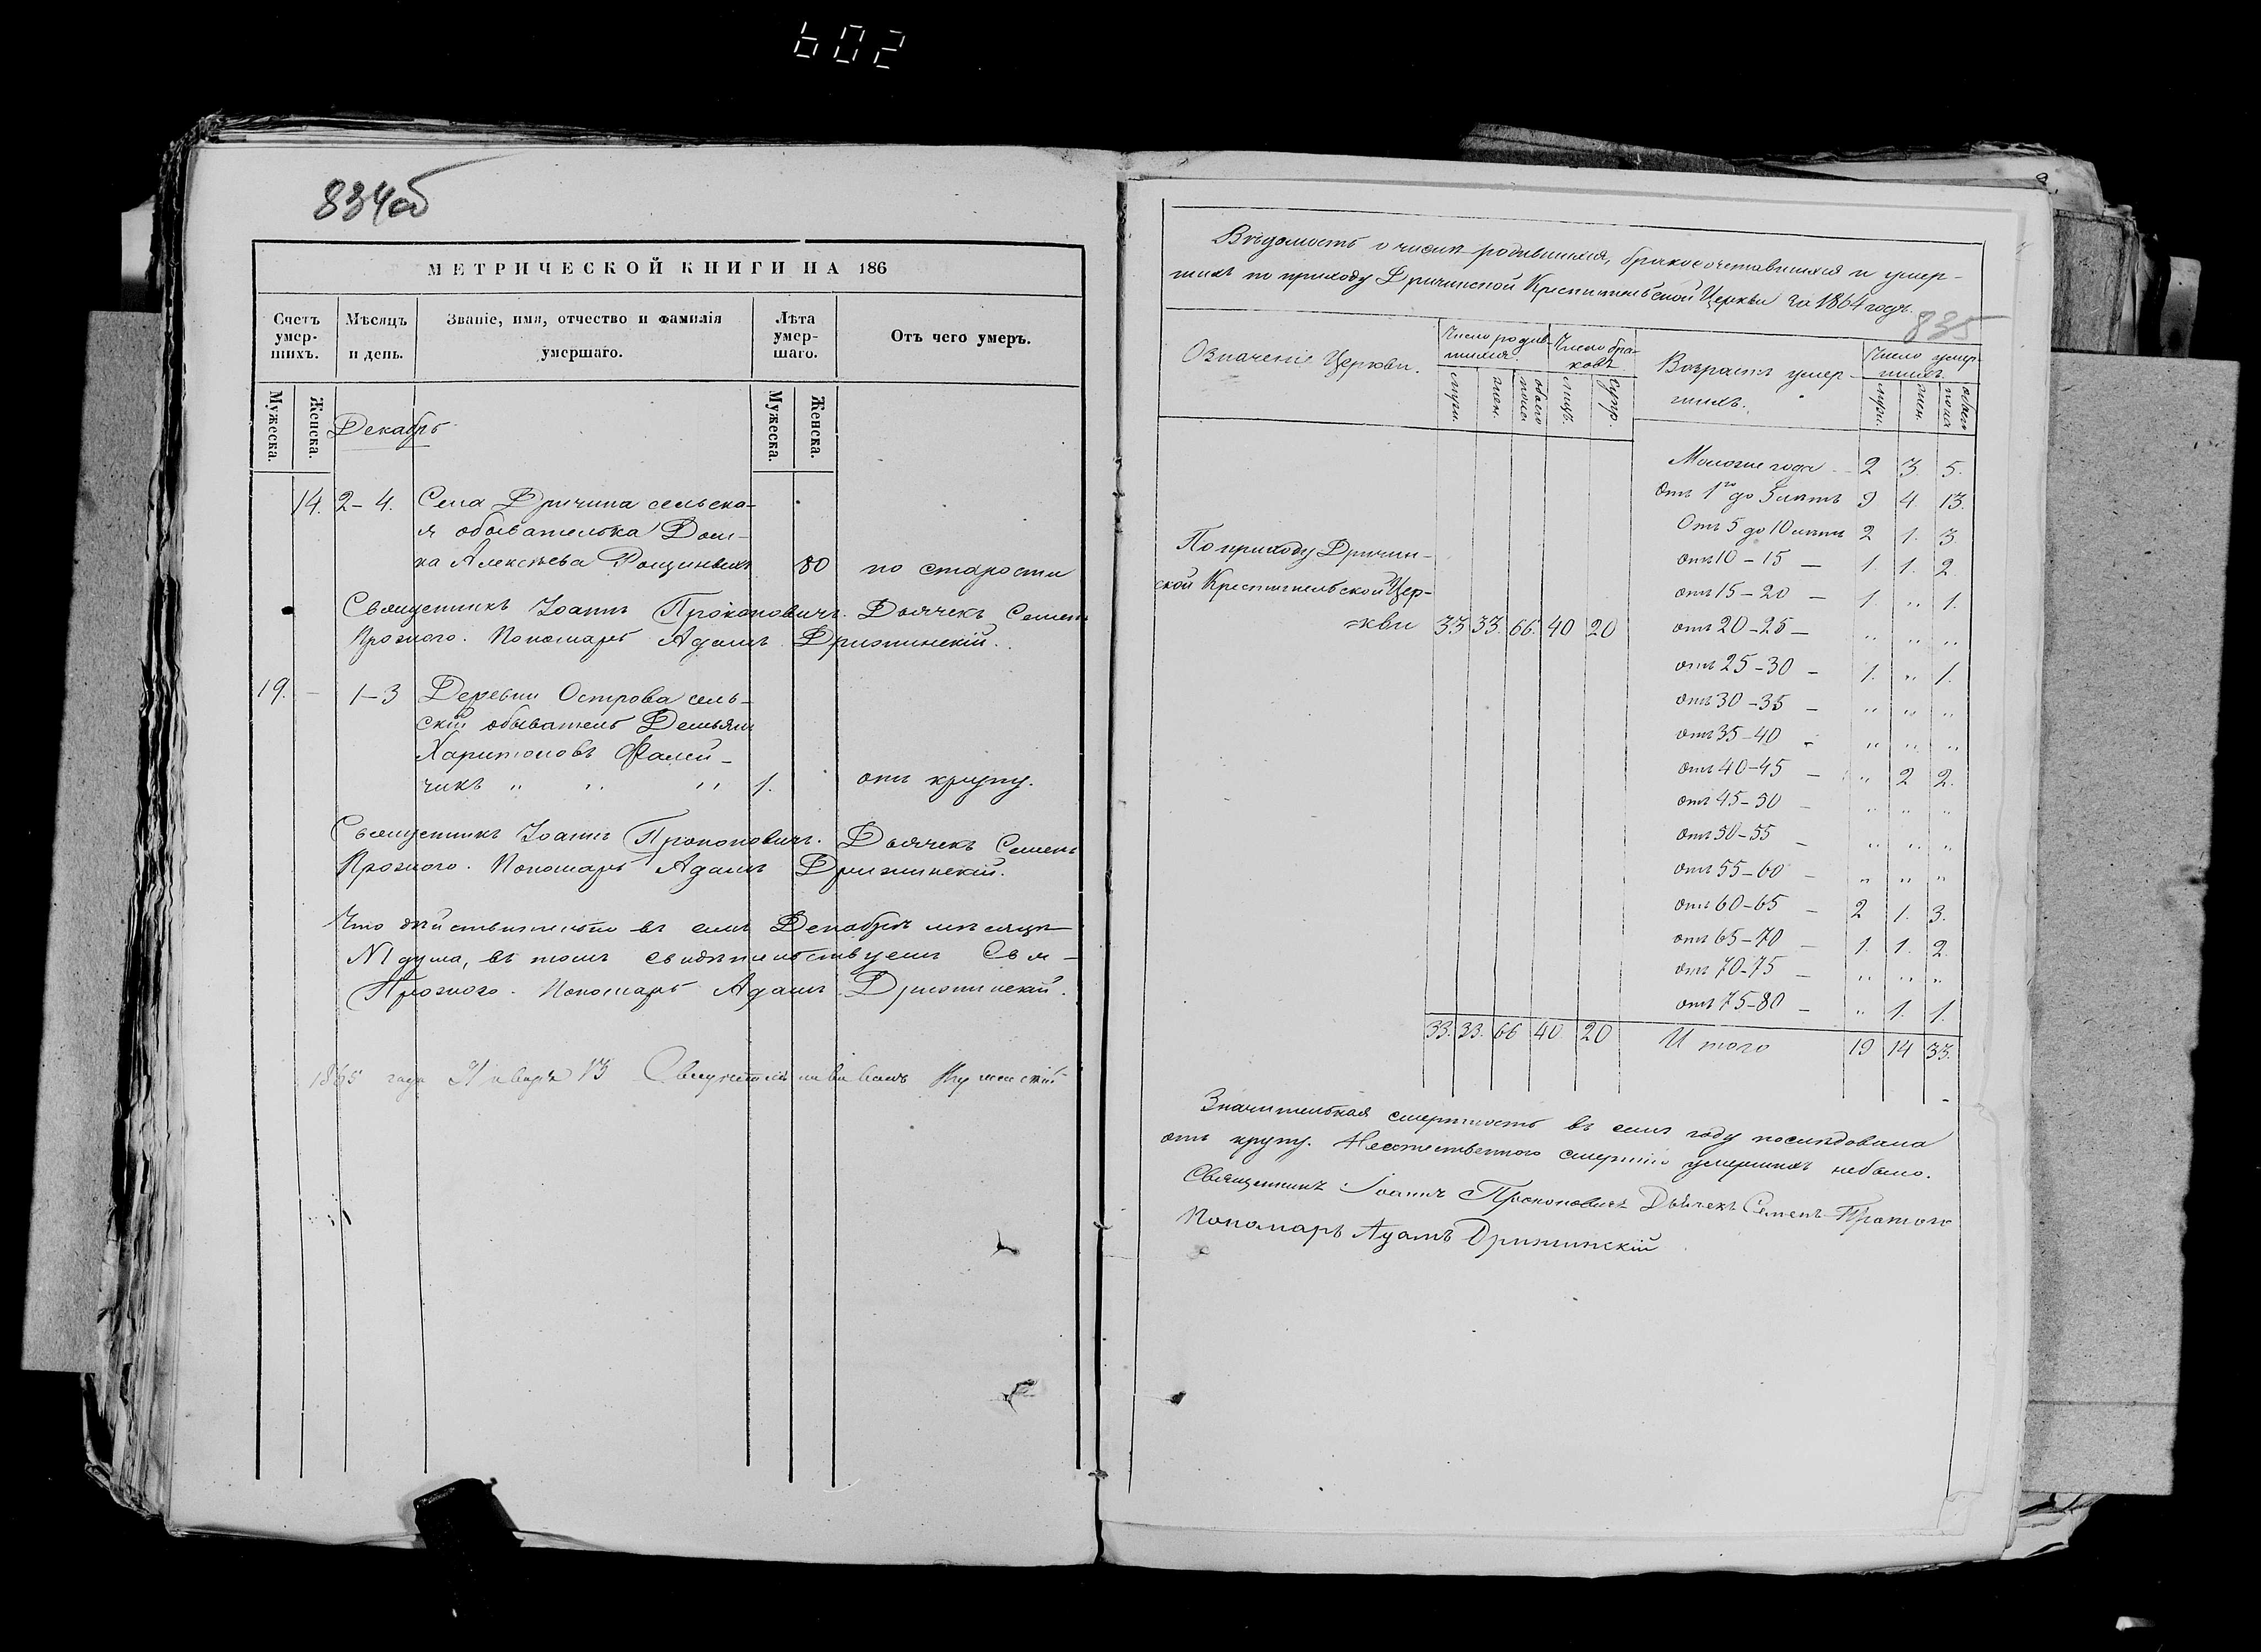 602
834об
МЕТРИЧЕСКОЙ КНИГИ НА 186
Счетъ умер-шихъ.
Мѣсяцъ и день.
Званіе, имя, отчество и фамилія умершаго.
Лѣта умер-шаго.
Отъ чего умеръ.
Мужеска. Женска. Мужеска. Женска.
Декабрь
14. 2-4. Села Дричина сельска-
я обывателька Дом-
на Алексѣева 80 по старости
Священникъ Іоаннъ Прокоповичъ. Дьячекъ Семенъ
Пономарь Адамъ
19. - 1-3 Деревни Острова сель-
скій обыватель Демьянъ
Харитоновъ Фалей-
чикъ „ „ „ 1. отъ крупу.
Священникъ Іоаннъ Прокоповичъ. Дьячекъ Семенъ
Пономарь Адамъ
Что дѣйствительно въ семъ Декабрѣ мѣсяцѣ
въ томъ свидѣтельствуемъ
Пономарь Адамъ
1865 года Января 13
Вѣдомость о числѣ родившихся, бракосочетавшихся и умер-
шихъ по приходу Дричинской Крестительской Церкви за 1864 годъ.
835
Означеніе Церкви.
Число родив-шихся.
Число бра-ковъ
Возрастъ умер-шихъ.
Число умер-шихъ.
муж. жен. обоего пола лицъ. супр. муж. жен. обоего пола
Моложе года - 2 3. 5.
Отъ 1го до 5 лѣтъ 9 4. 13.
Отъ 5 до 10 лѣтъ 2 1. 3.
По приходу Дричин-
отъ 10 - 15 - 1. 1. 2.
ской Крестительской Цер-
отъ 15 - 20 - 1. „ 1.
=кви 33 33. 66. 40 20
отъ 20 - 25 - „ „ „
отъ 25 - 30 - 1. „ 1.
отъ 30 - 35 - „ „ „
отъ 35 - 40 - „ „ „
отъ 40 - 45 - „ 2 2.
отъ 45 - 50 - „ „ „
отъ 50 - 55 - „ „ „
отъ 55 - 60 - „ „ „
отъ 60 - 65 - 2 1. 3.
отъ 65 - 70 - 1. 1. 2.
отъ 70 - 75 - „ „ „
отъ 75 - 80 - „ 1. 1.
33. 33. 66 40 20 Итого 19 14 33.
Значительная смертность въ семъ году послѣдовала
отъ крупу. Неестественного смертію умершихъ небыло.
Священникъ Іоаннъ Прокоповичъ Дьячекъ Семенъ
Пономарь Адамъ